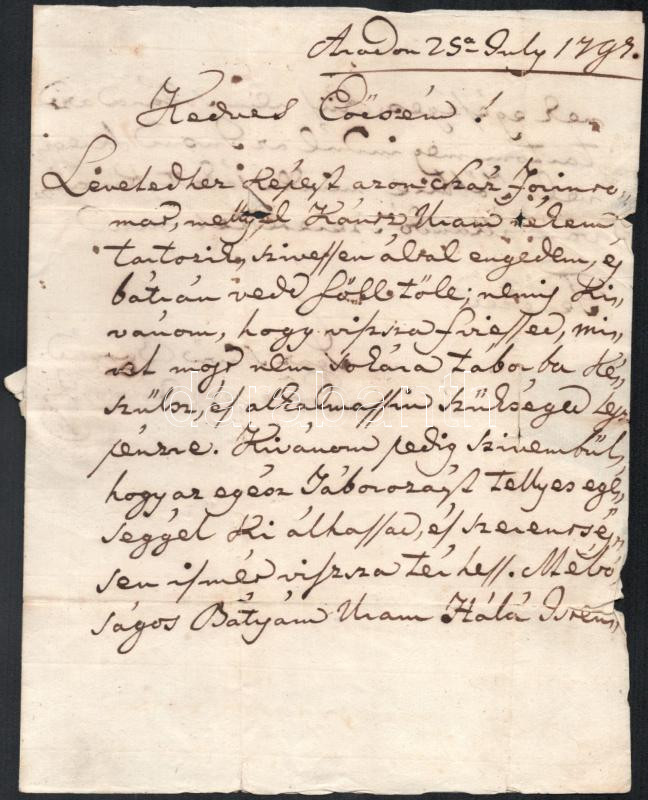 Aradon 25a July 1797.
Kedves Öcsém!
Leveledhez képest azon száz Forinto-
mat, mellyel Káncz Uram nékem
tartozik, szivessen által engedem, és
bátran vedd föll tőle; nemis ki-
vánom, hogy vissza fizessed, mi-
vel most nem sokára táborba ké-
szülsz, és alkalmassin szükséged lessz
pénzre. Kivánom pedig szivembül,
hogy az egész Táborozást tellyes egés-
séggel ki álhassad, és szerencsés-
sen ismét viszsza térhess. Méltó-
ságos Bátyám Uram Hálá Isten-
darabanth